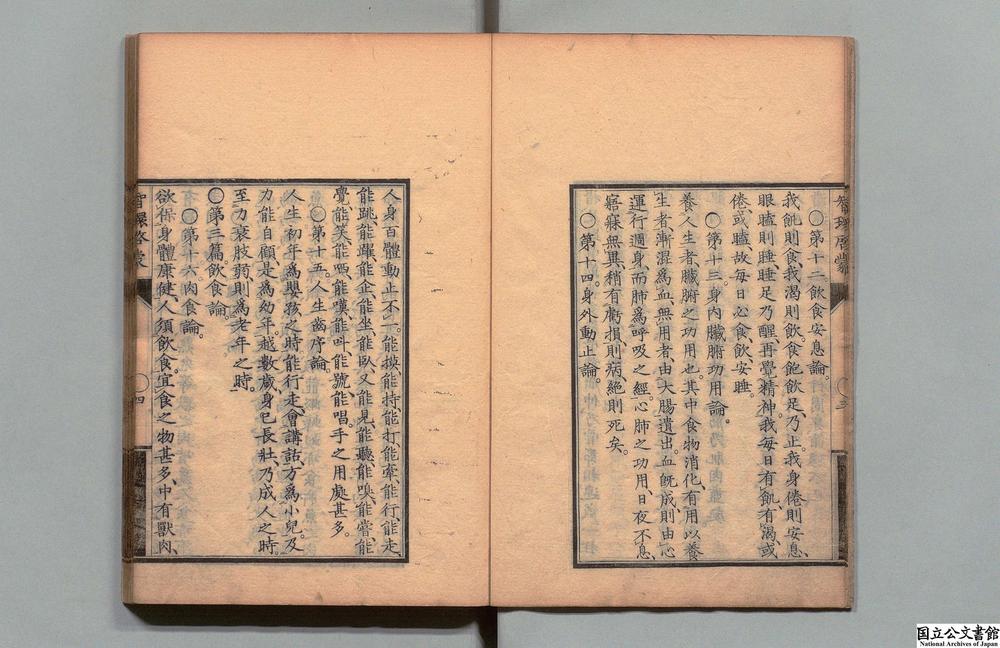 〇第十二飲食安息論。
我飢則食、我渴則飲。食飽飲足、乃止。我身倦則安息、
眼瞌則睡、睡足乃醒、再覺精神。我每日有飢、有渴、或
倦、或瞌、故每日必食、飲、安睡。
〇第十三身內臟腑功用論。
養人生者、臟腑之功用也。其中食物消化、有用以養
生者、漸混爲血、無用者、由大腸遺出。血旣成、則由心
運行週身、而肺爲呼吸之經。心肺之功用、日夜不息、
寤寐無異、稍有虧損、則病、絕則死矣。
〇第十四。身外動止論。
人身百體動止不一。能摸、能持、能打、能牽、能行、能走、
能跳、能躍、能企、能坐、能臥、又能見、能聽、能嗅、能嘗、能
覺、能笑、能哂、能嘆、能呌、能號、能唱。手之用處甚多。
〇第十五。人生齒序論。
人生初年、爲嬰孩之時、能行走、會講話、方爲小兒。及
力能自顧、是爲幼年。越數歲、身已長壯、乃成人之時。
至力衰肢弱、則爲老年之時。
〇第三篇、飲食論。
〇第十六。肉食論。
欲保身體康健、人須飲食。宜食之物甚多、中有獸肉、
智環啓蒙
〇三
〇四
国立公文書館
National Archives of Japan